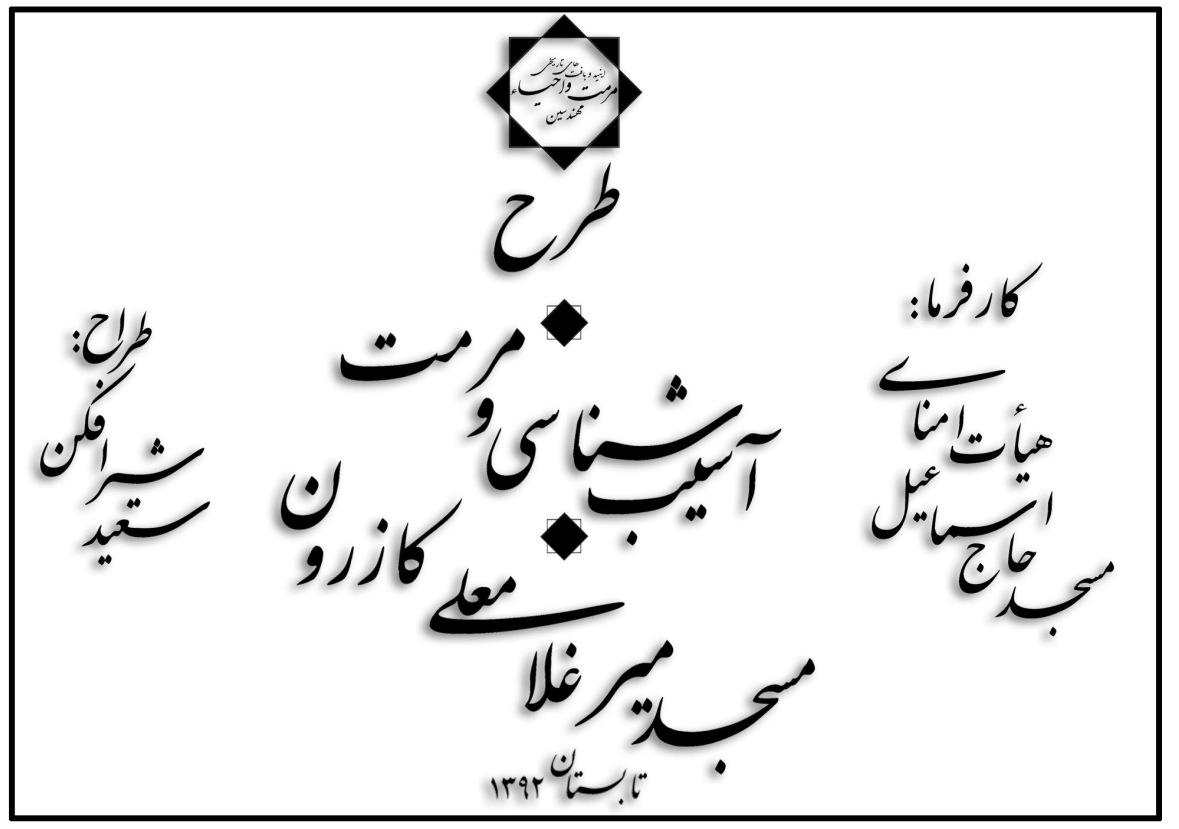 ابنیه و بافت های تاریخی
مرمت و احیاء
مهندسین
طرح
آسیب شناسی و مرمت
مسجد میر غلا معلی کازرون
تابستان ۱۳۹۲
کارفرما:
هیأت امنای
مسجد حاج اسماعیل
طراح:
سعید شیرافکن